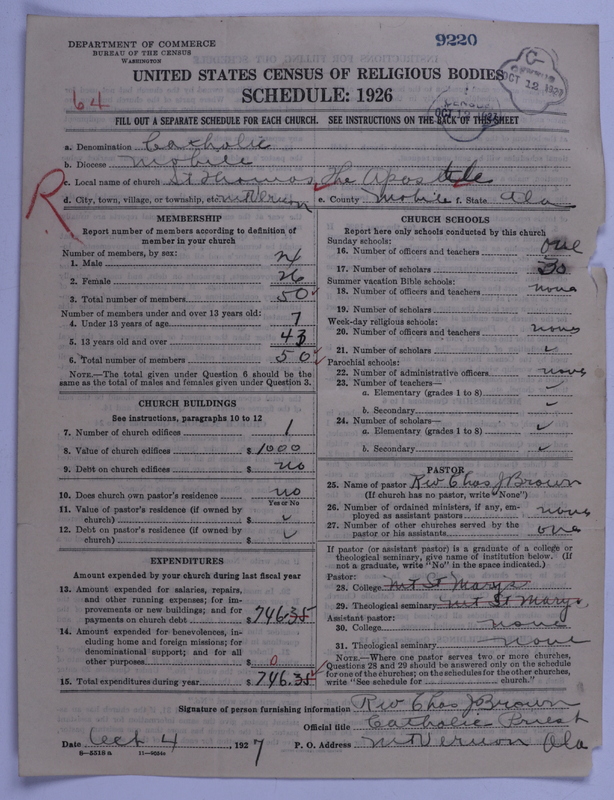 DEPARTMENT OF COMMERCE
BUREAU OF THE CENSUS
WASHINGTON
9220
C
CENSUS
OCT 12 1927
UNITED STATES CENSUS OF RELIGIOUS BODIES
SCHEDULE: 1926
64
CENSUS
FILL OUT A SEPARATE SCHEDULE FOR EACH CHURCH. SEE INSTRUCTIONS ON THE BACK OF THIS SHEET
a. Denomination Catholic
b. Diocese Mobile
c. Local name of church St Thomas The Apostle
R
d. City, town, village, or township, etc. Mt Vernon e. County Mobile f. State Ala
MEMBERSHIP
Report number of members according to definition of
member in your church
Number of members, by sex:
1. Male 24
2. Female 26
3. Total number of members 50
Number of members under and over 13 years old:
4. Under 13 years of age 7
5. 13 years old and over 43
6. Total number of members 50
NOTE.—The total given under Question 6 should be the
same as the total of males and females given under Question 3.
CHURCH BUILDINGS
See instructions, paragraphs 10 to 12
7. Number of church edifices 1
8. Value of church edifices $ 1000
9. Debt on church edifices $ no
10. Does church own pastor's residence no
Yes or No
11. Value of pastor's residence (if owned by
church) $ ✓
12. Debt on pastor's residence (if owned by
church) $ ✓
EXPENDITURES
Amount expended by your church during last fiscal year
13. Amount expended for salaries, repairs,
and other running expenses; for im-
provements or new buildings; and for
payments on church debt $ 746.35
14. Amount expended for benevolences, in-
cluding home and foreign missions; for
denominational support; and for all
other purposes $ 0
15. Total expenditures during year $ 746.35
CHURCH SCHOOLS
Report here only schools conducted by this church
Sunday schools:
16. Number of officers and teachers one
17. Number of scholars 30
Summer vacation Bible schools:
18. Number of officers and teachers none
19. Number of scholars
Week-day religious schools:
20. Number of officers and teachers none
21. Number of scholars ✓
Parochial schools:
22. Number of administrative officers none
23. Number of teachers—
a. Elementary (grades 1 to 8) ✓
b. Secondary ✓
24. Number of scholars—
a. Elementary (grades 1 to 8) ✓
b. Secondary ✓
PASTOR
25. Name of pastor Rev Chas J Brown
(If church has no pastor, write "None")
26. Number of ordained ministers, if any, em-
ployed as assistant pastors none
27. Number of other churches served by the
pastor or his assistants one
If pastor (or assistant pastor) is a graduate of a college or
theological seminary, give name of institution below. (If
not a graduate, write "No" in the space indicated.)
Pastor:
28. College Mt St Marys
29. Theological seminary Mt St Marys
Assistant pastor:
30. College none
31. Theological seminary none
NOTE.—Where one pastor serves two or more churches,
Questions 28 and 29 should be answered only on the schedule
for one of the churches; on the schedules for the other churches,
write "See schedule for church."
Signature of person furnishing information Rev Chas J Brown
Official title Catholic Priest
Date Oct 4 1927 P. O. Address Mt Vernon Ala
8—5318 a